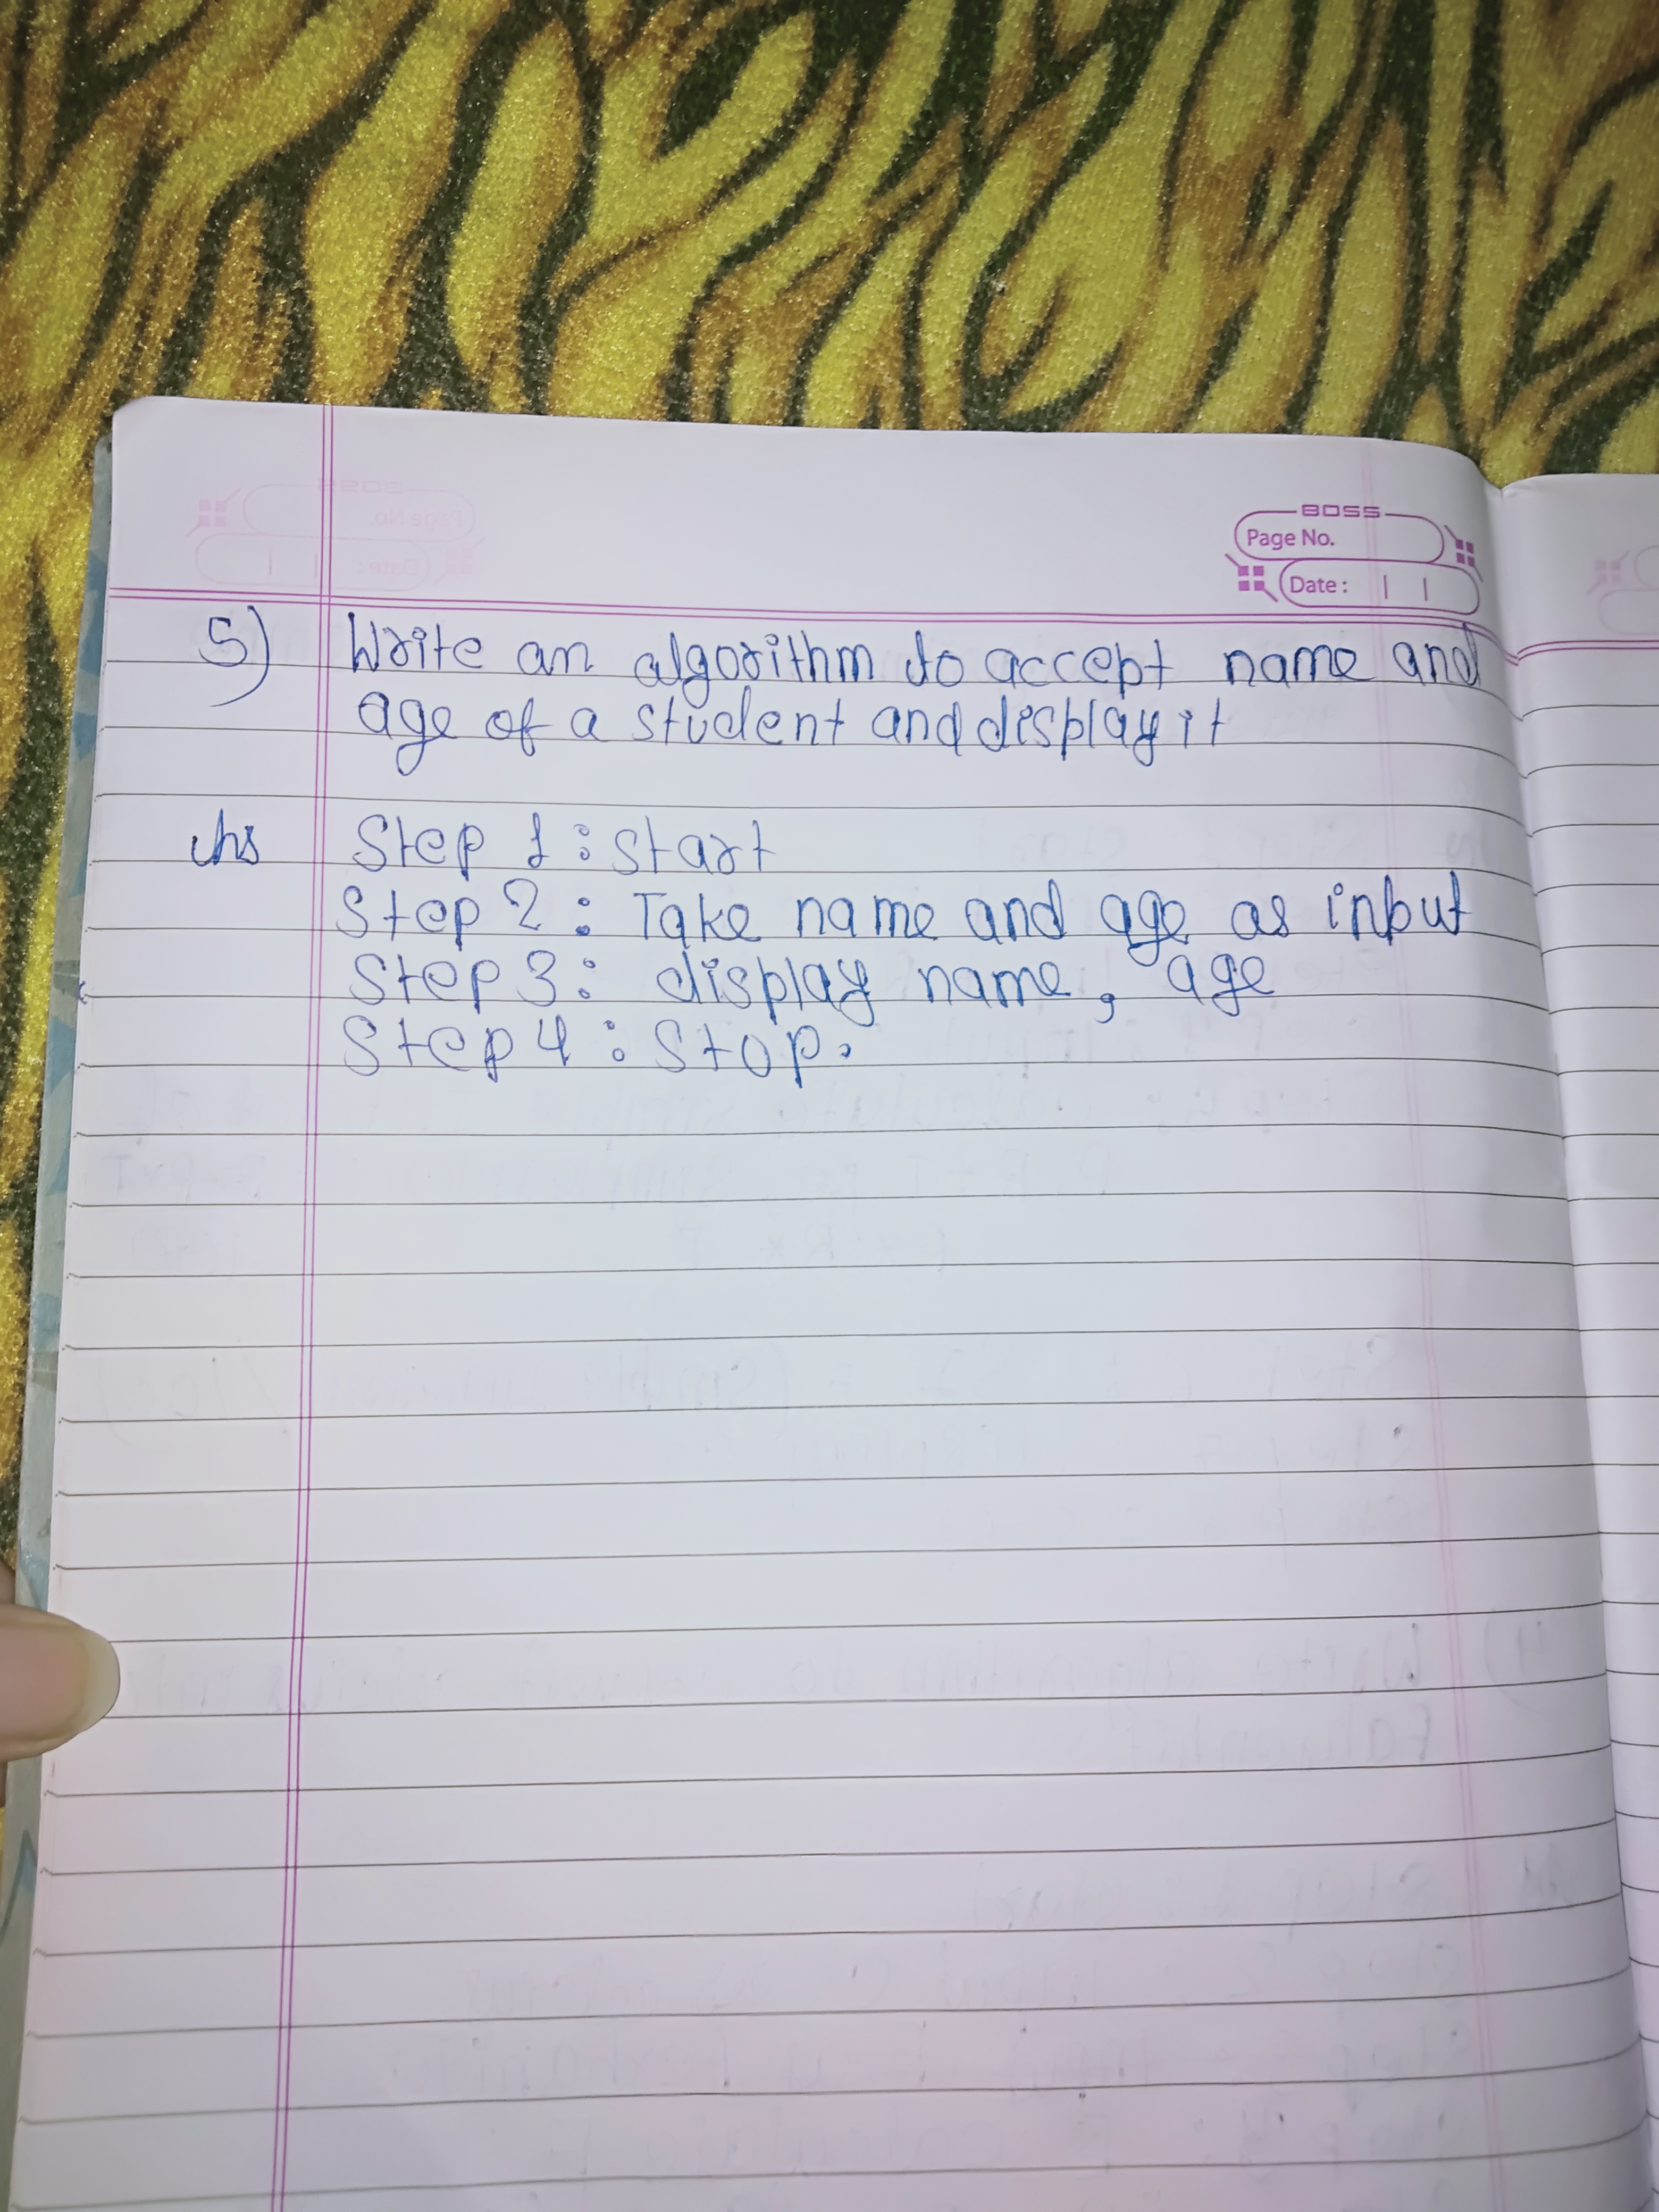 BOSS
Page No.
Date :
5) Write an algorithm to accept name and
age of a student and display it
Ans Step 1 : start
Step 2 : Take name and age as input
Step 3 : display name, age
Step 4 : Stop.